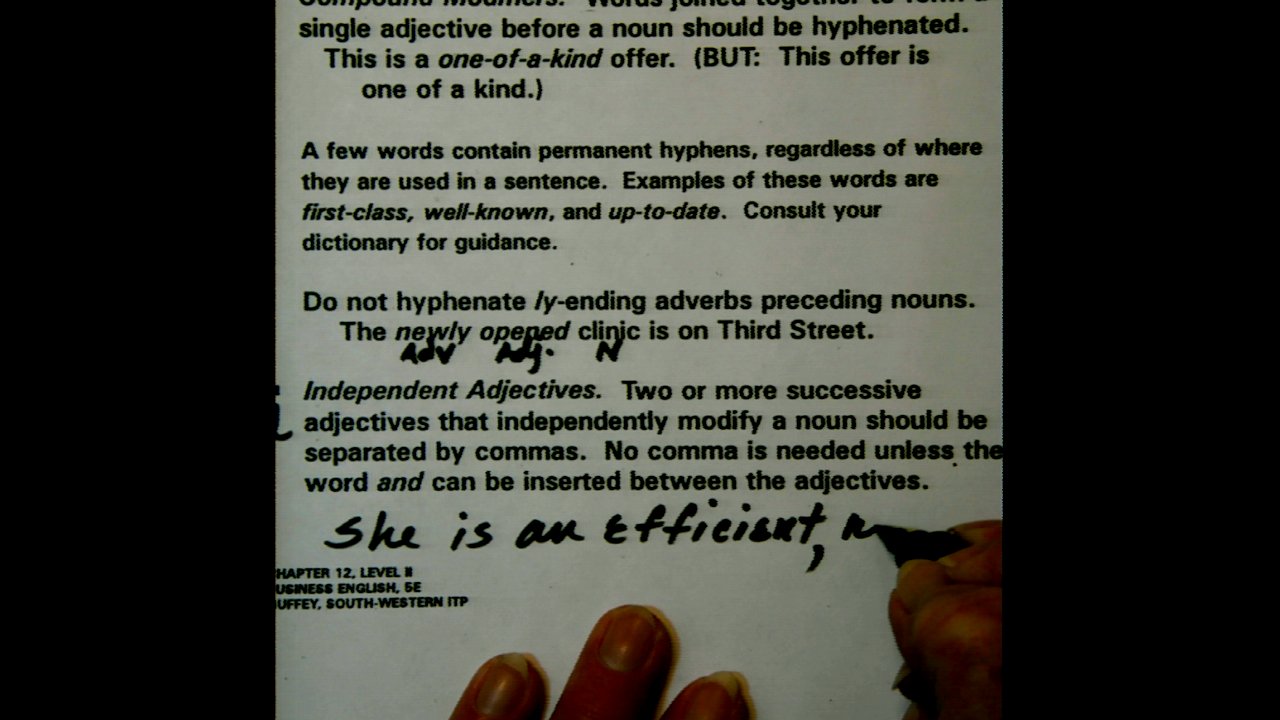 Compound Modifiers. Words joined together to form a
single adjective before a noun should be hyphenated.
This is a one-of-a-kind offer. (BUT: This offer is
one of a kind.)
A few words contain permanent hyphens, regardless of where
they are used in a sentence. Examples of these words are
first-class, well-known, and up-to-date. Consult your
dictionary for guidance.
Do not hyphenate ly-ending adverbs preceding nouns.
The newly opened clinic is on Third Street.
Adv Adj. N
Independent Adjectives. Two or more successive
adjectives that independently modify a noun should be
separated by commas. No comma is needed unless the
word and can be inserted between the adjectives.
She is an efficient,
HAPTER 12, LEVEL II
USINESS ENGLISH, 5E
UFFEY, SOUTH-WESTERN ITP